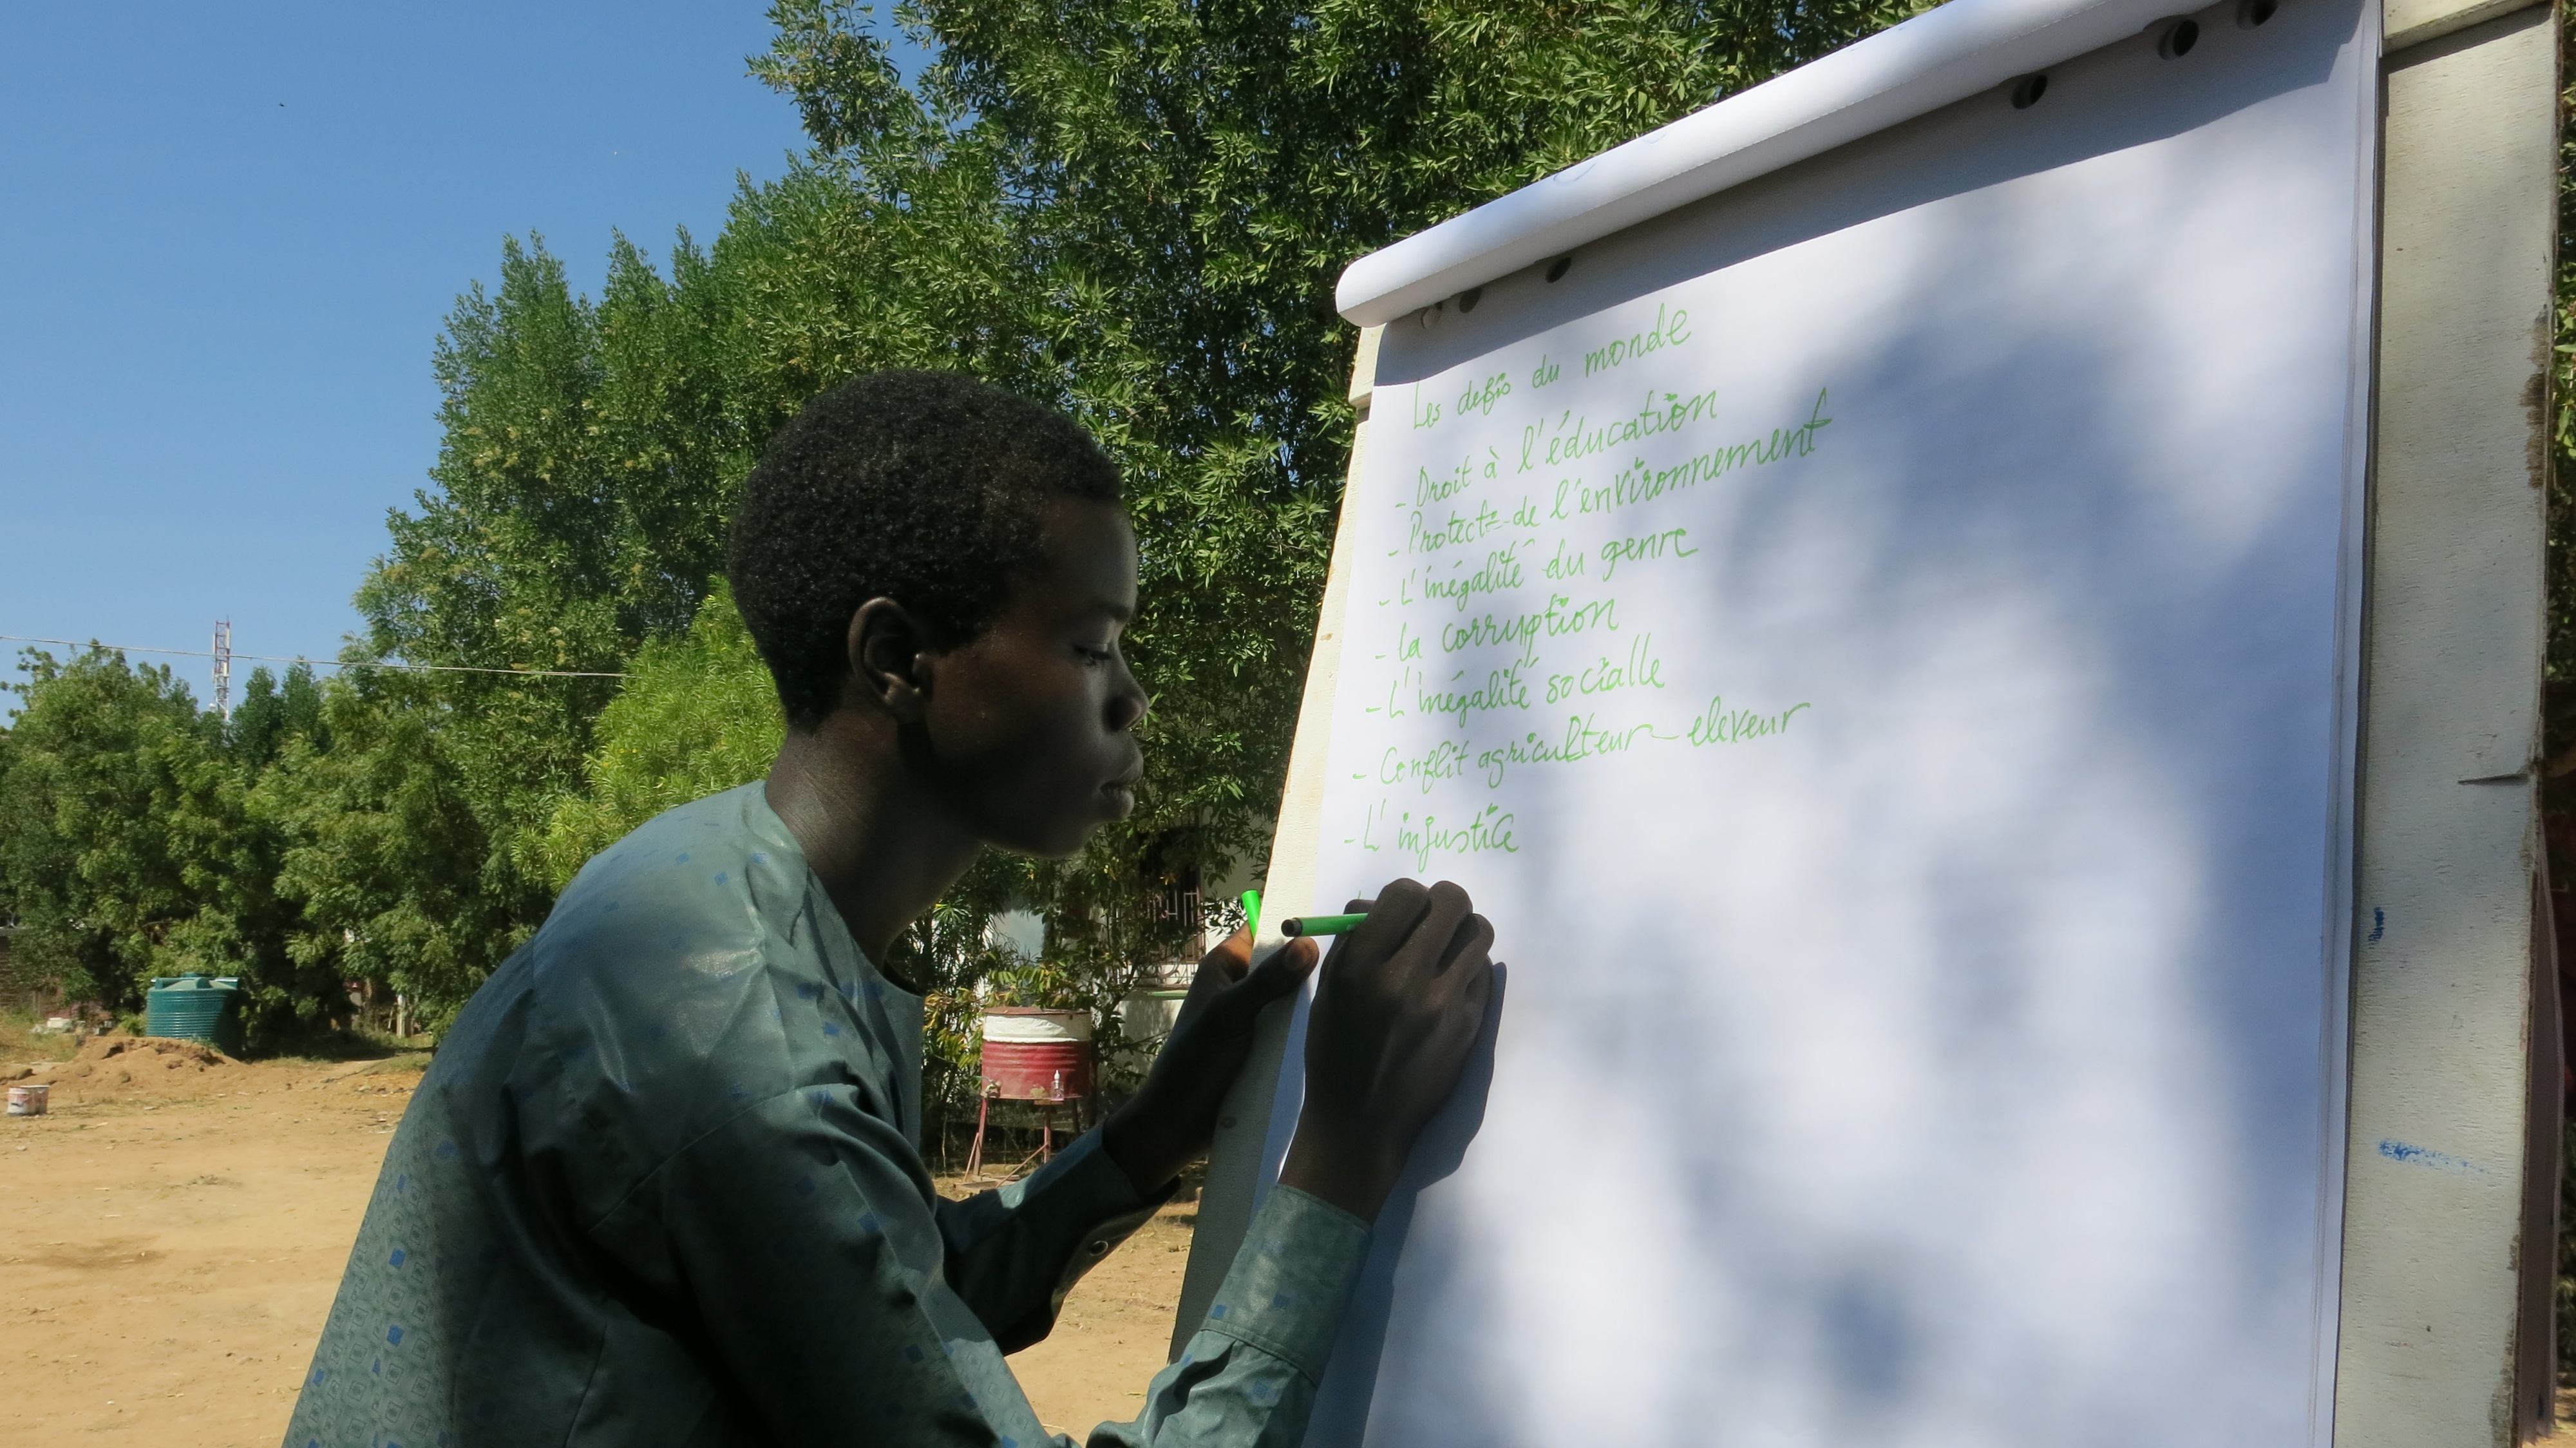 Les defis du monde
- Droit à l'éducation
- Protect= de l'environnement
- L'inégalité du genre
- La corruption
- L'inégalité socialle
- Conflit agriculteur-eleveur
- L'injustice